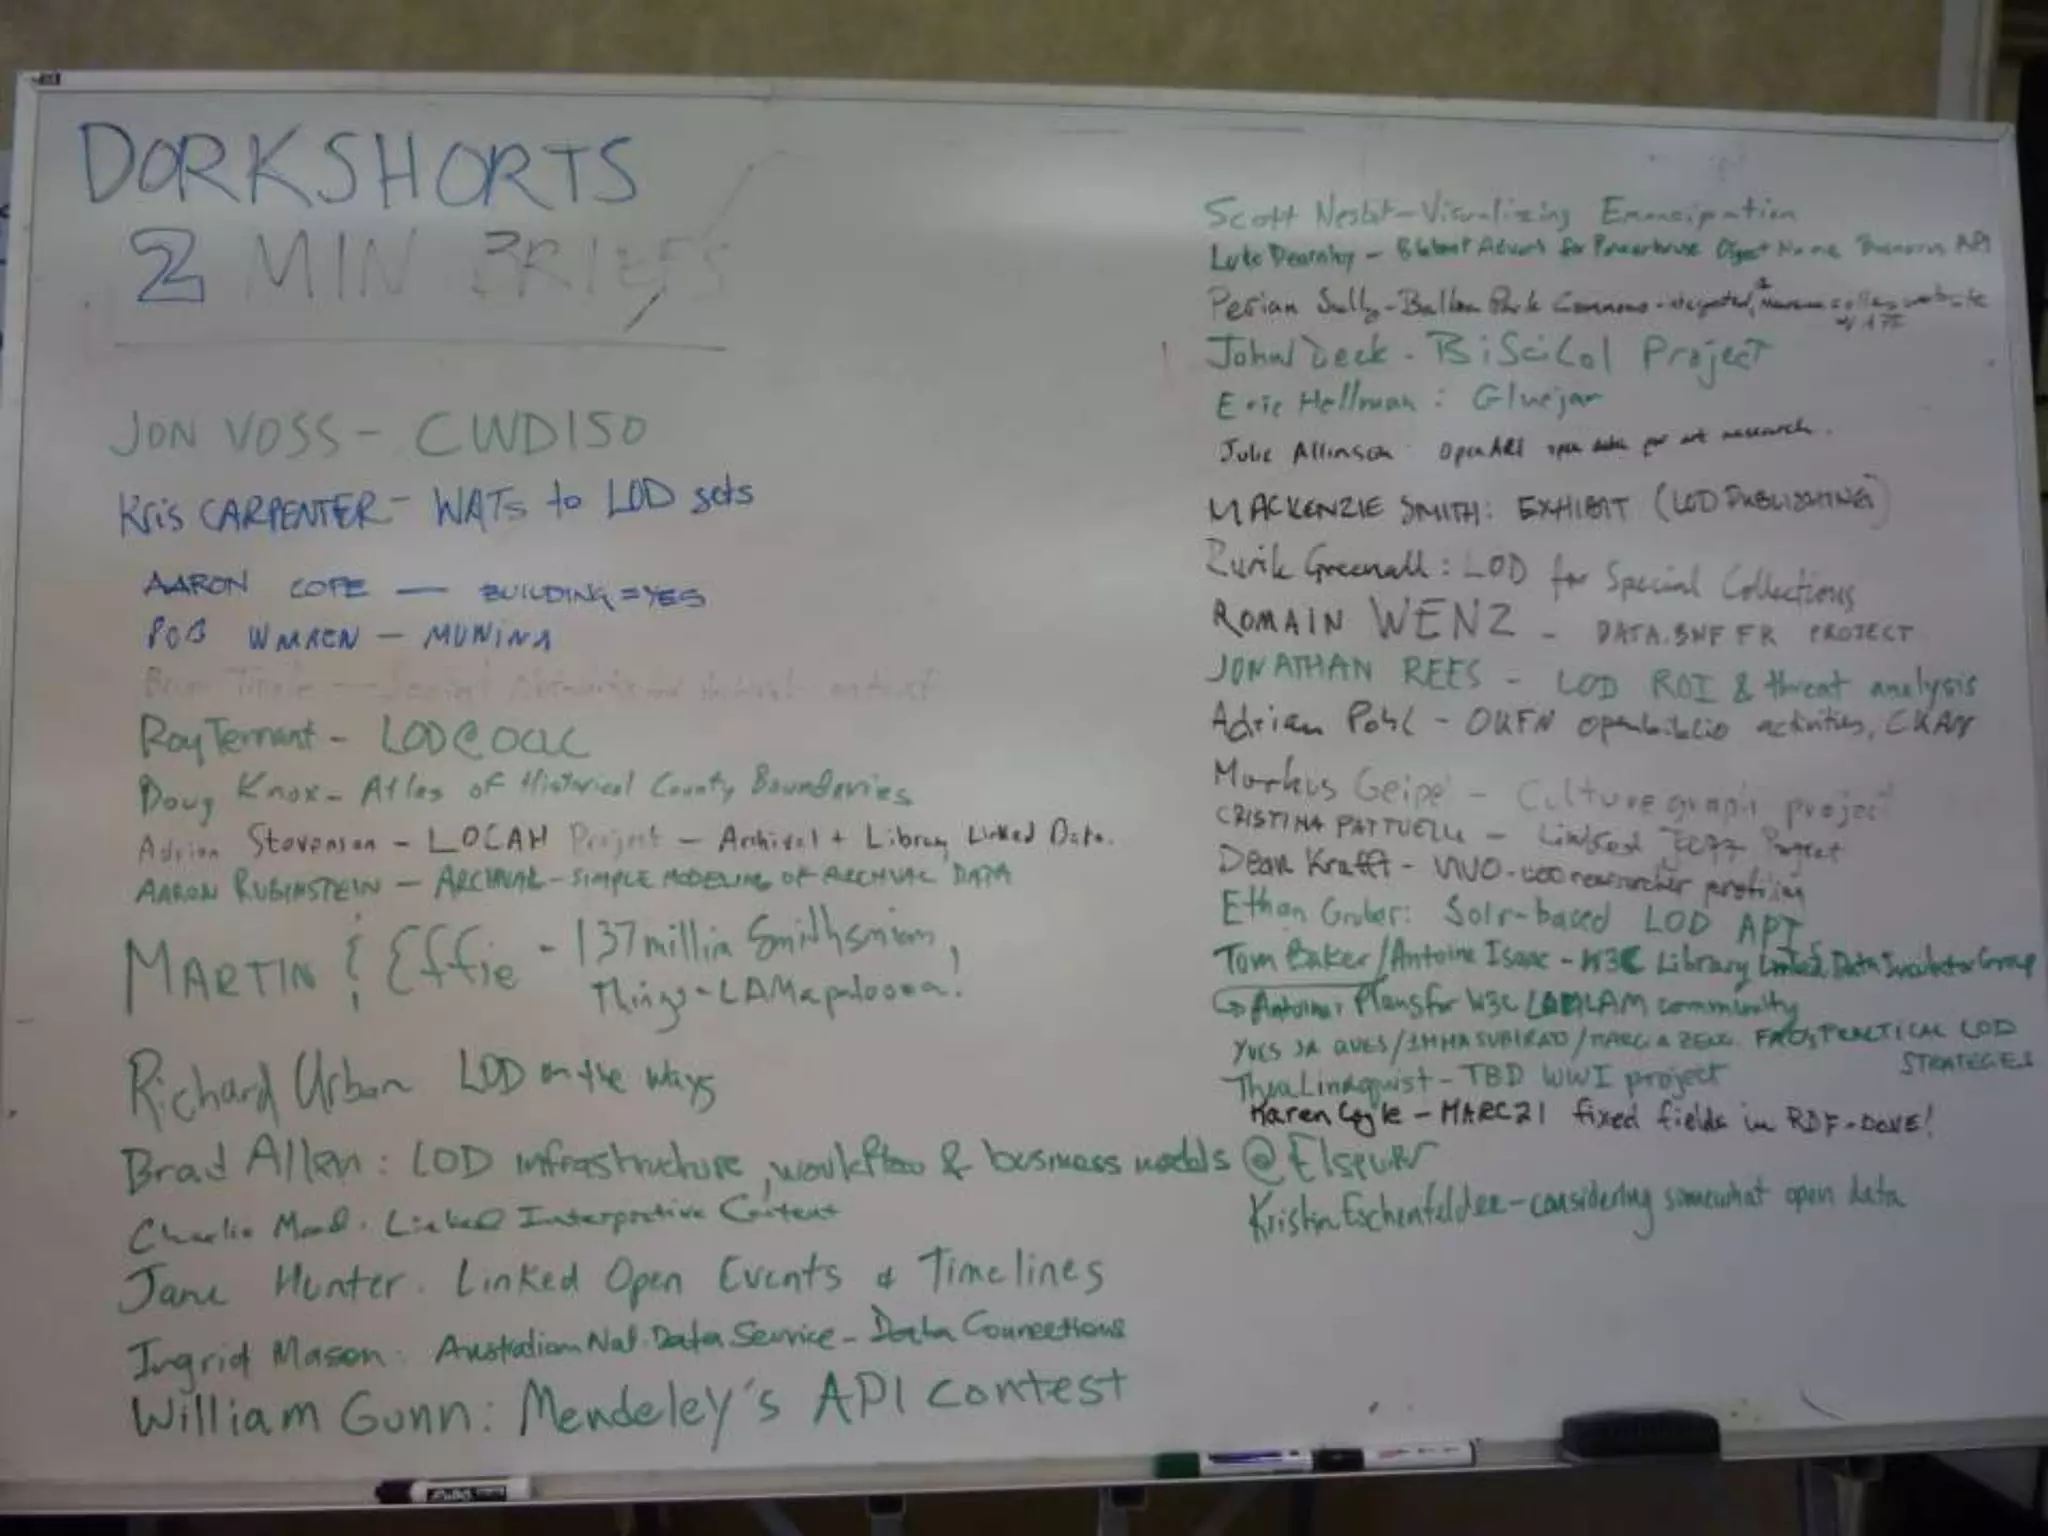 DORKSHORTS
2 MIN BRIEFS
JON VOSS - CWD150
Kris CARPENTER - WATs to LOD sets
AARON COPE — BUILDING=YES
ROB WARREN — MUNINN
Roy Tennant - LOD@OCLC
Doug Knox - Atlas of Historical County Boundaries
Adrian Stevenson - LOCAH Project - Archival + Library Linked Data.
AARON RUBINSTEIN - ARCHIVAL - SIMPLE MODELING OF ARCHIVAL DATA
MARTIN & Effie - 137 million Smithsonian
Things - LAMapalooza!
Richard Urban LOD on the ways
Brad Allen: LOD infrastructure, workflow & business models @ Elsevier
Charlie Linked Interpretive Content
Jane Hunter. Linked Open Events & Timelines
Ingrid Mason. Australian Nat. Data Service - Data Connections
William Gunn: Mendeley's API contest
Scott Nesbit - Visualizing Emancipation
Luke Dearnley - for Powerhouse Object Name Thesaurus API
Perian Sully - Balboa Park Commons - integrated, museum website
w/ API
John Deck - BiSciCol Project
Eric Hellman: Gluejar
Julie Allinson OpenARt open data for art research.
MACKENZIE SMITH: EXHIBIT (LOD PUBLISHING)
Rurik Greenall: LOD for Special Collections
ROMAIN WENZ - DATA.BNF FR PROJECT
JONATHAN REES - LOD ROI & threat analysis
Adrian Pohl - OKFN openbiblio activities, CKAN
Markus Geipel - Culturegraph project
CRISTINA PATTUELLI - Linked Jazz Project
Dean Krafft - VIVO - LOD researcher profiling
Ethan Gruber: Solr-based LOD API
Tom Baker/Antoine Isaac - W3C Library Linked Data Incubator Group
Antoine: Plans for W3C LODLAM community
YVES JAQUES/IMMA SUBIRATS/MARCIA ZENG FAO, PRACTICAL LOD
STRATEGIES
Thea Lindquist - TBD WWI project
Karen Coyle - MARC21 fixed fields in RDF - DONE!
Kristin Eschenfelder - considering somewhat open data